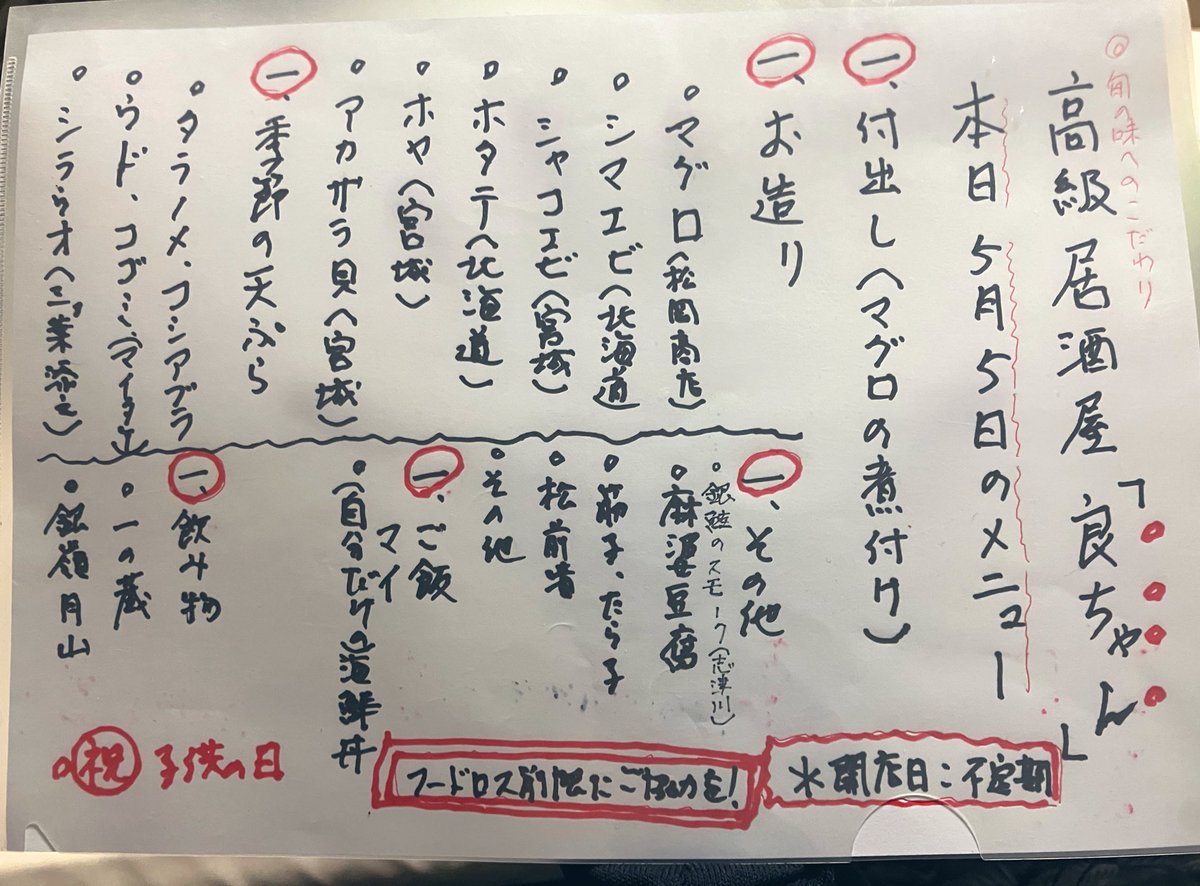 ◎旬の味へのこだわり
高級居酒屋「良ちゃん」
本日5月5日のメニュー
一、付出し(マグロの煮付け)
一、お造り
○マグロ(松岡商店)
○シマエビ(北海道)
○シャコエビ(宮城)
○ホタテ(北海道)
○ホヤ(宮城)
○アカザラ貝(宮城)
一、季節の天ぷら
○タラノメ、コシアブラ
○ウド、コゴミ、マイタケ
○シラウオ(三つ葉添え)
一、その他
○銀鮭のスモーク(志津川)
○麻婆豆腐
○筋子、たら子
○松前漬
○その他
一、ご飯
マイ
○(自分だけの)海鮮丼
一、飲み物
○一の蔵
○銀嶺月山
※開店日:不定期
フードロス削減にご協力を!
○祝 子供の日